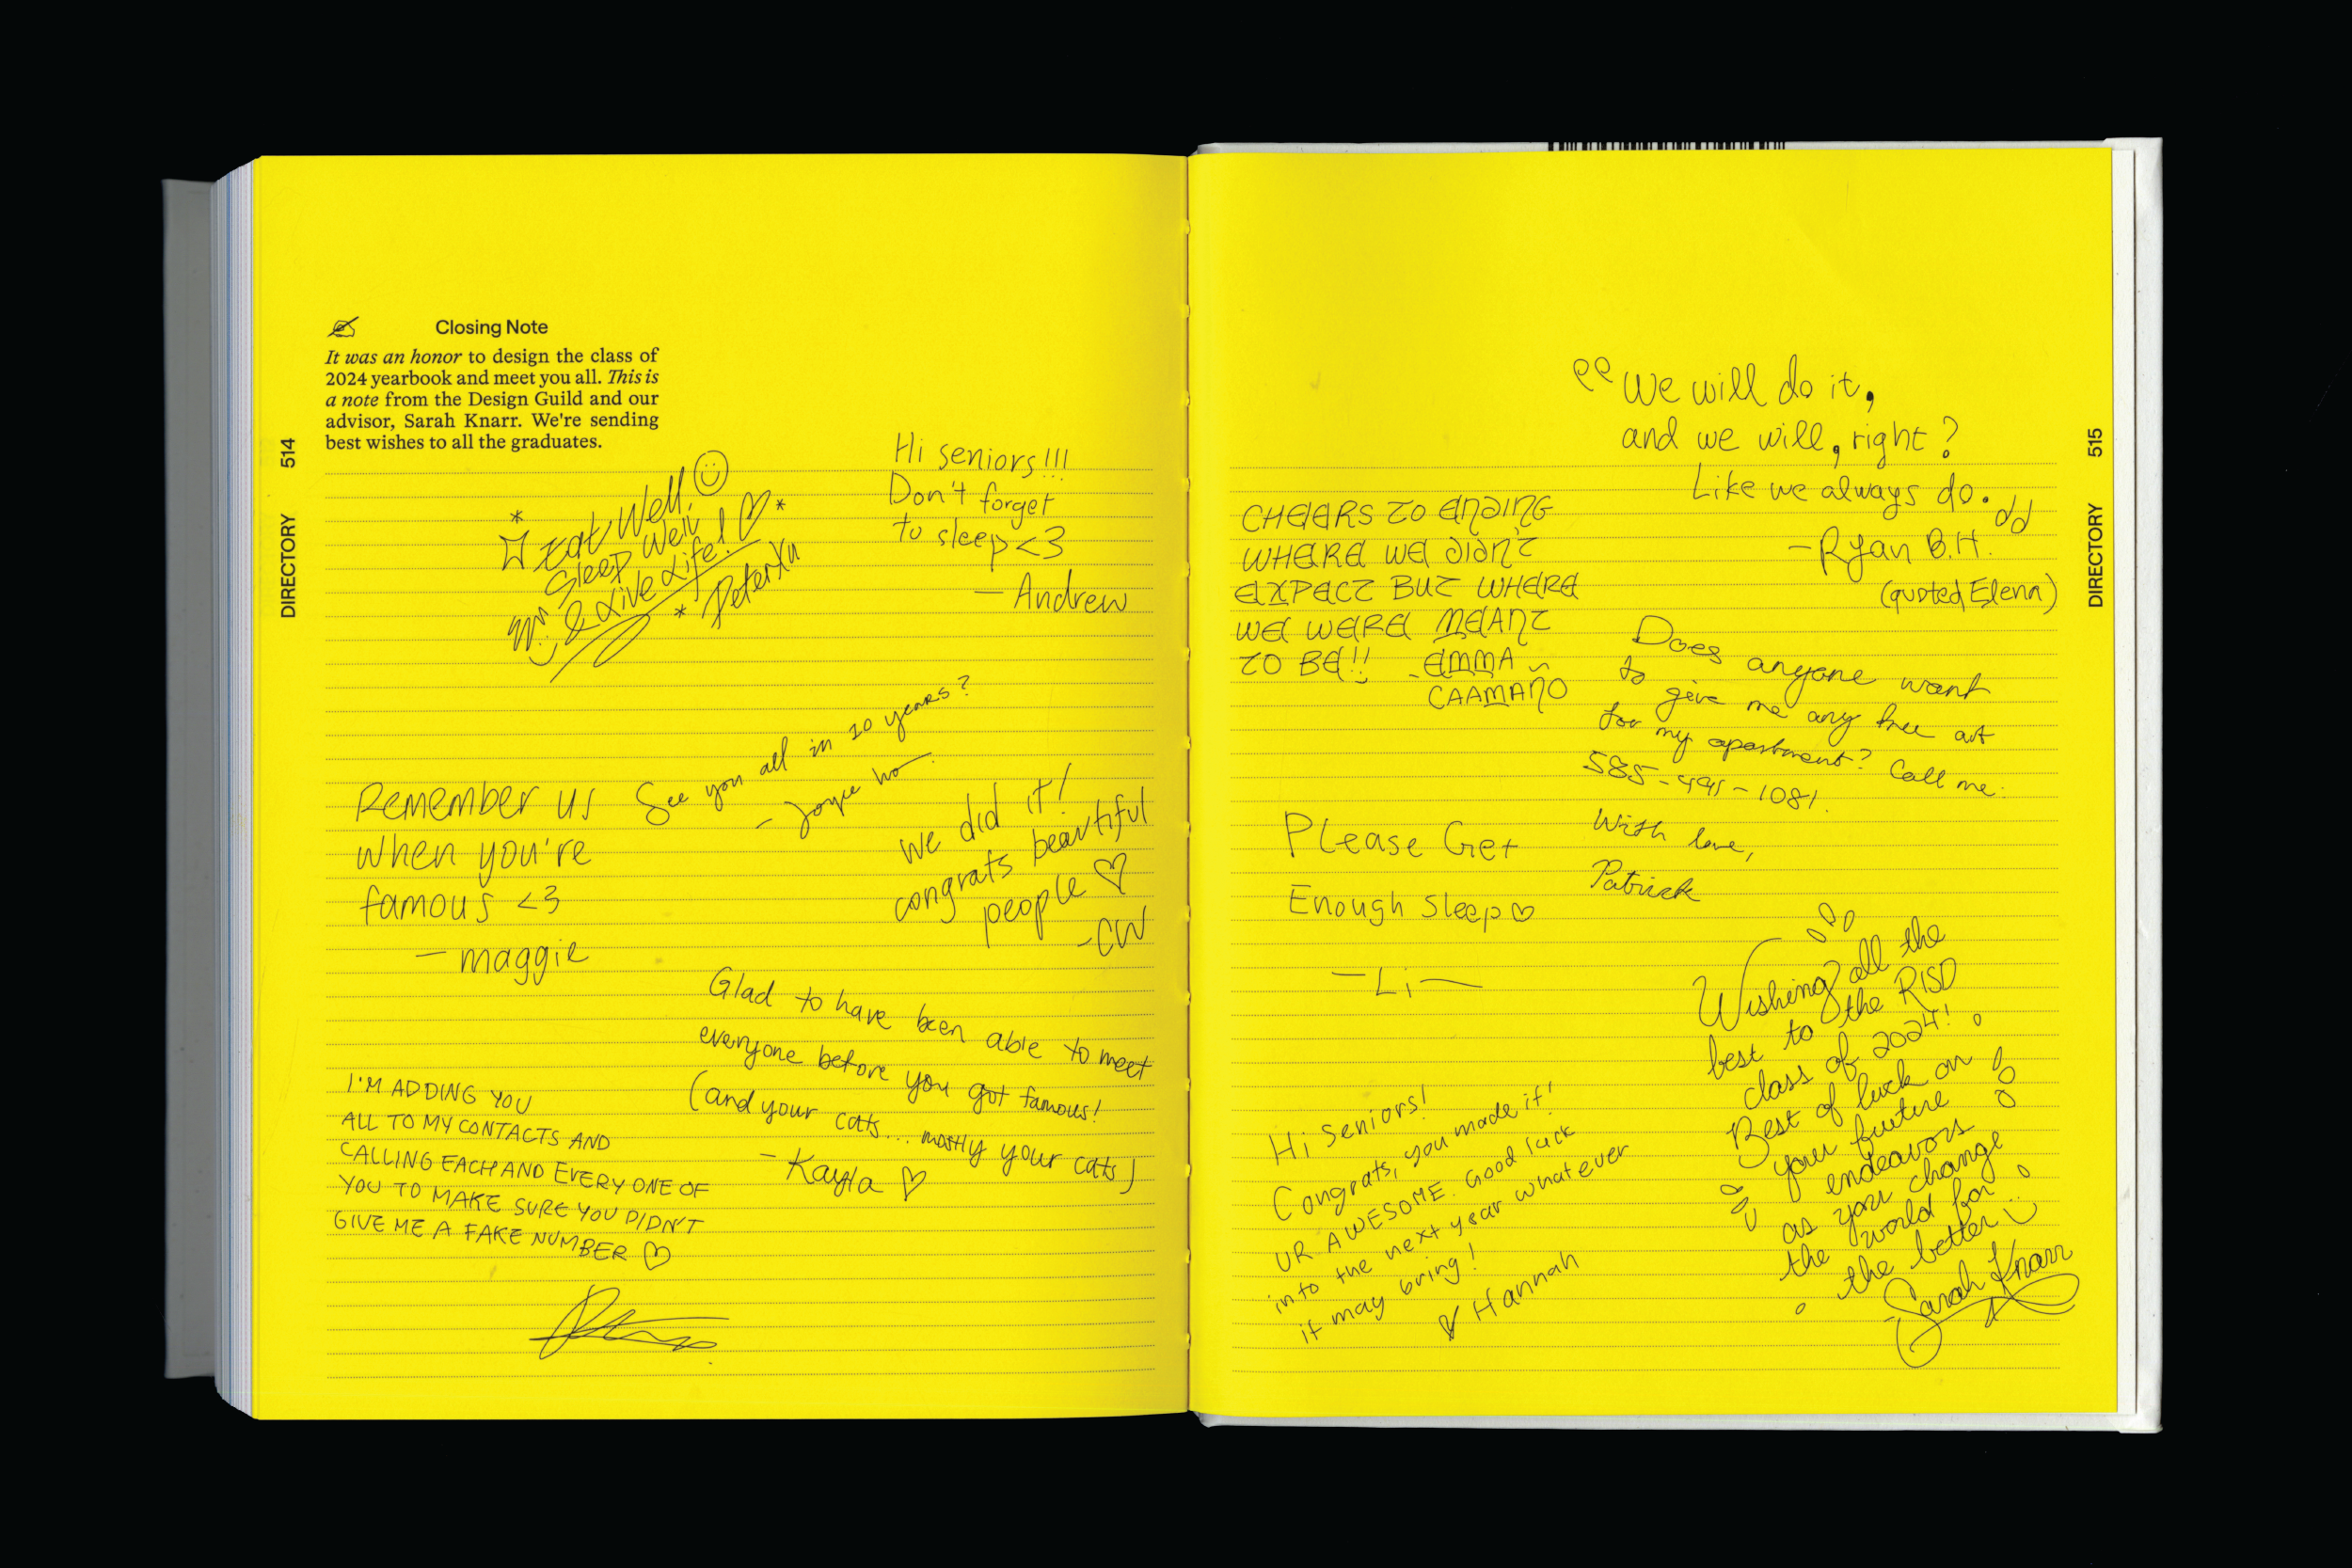 Closing Note
It was an honor to design the class of
2024 yearbook and meet you all. This is
a note from the Design Guild and our
advisor, Sarah Knarr. We're sending
best wishes to all the graduates.
514
DIRECTORY
Eat Well,
Sleep Well
& Live Life!
Peter Xu
Hi seniors!!!
Don't forget
to sleep <3
— Andrew
See you all in 10 years?
- Joyce Ho
Remember us
when you're
famous <3
— maggie
we did it!
congrats beautiful
people ♡
-CW
Glad to have been able to meet
everyone before you got famous!
(and your cats... mostly your cats)
- Kayla ♡
I'M ADDING YOU
ALL TO MY CONTACTS AND
CALLING EACH AND EVERY ONE OF
YOU TO MAKE SURE YOU DIDN'T
GIVE ME A FAKE NUMBER ♡
515
DIRECTORY
"We will do it,
and we will, right?
Like we always do."
- Ryan B.H.
(quoted Elena)
CHEERS TO ENDING
WHERE WE DIDN'T
EXPECT BUT WHERE
WE WERE MEANT
TO BE!! - EMMA
CAAMAÑO
Does anyone want
to give me any free art
for my apartment? Call me.
585-
With love,
Patrick
Please Get
Enough Sleep ♡
— Li —
Wishing all the
best to the RISD
class of 2024!
Best of luck on
your future
endeavors
as you change
the world for
the better
- Sarah Knarr
Hi Seniors!
Congrats, you made it!
UR AWESOME. Good luck
into the next year whatever
it may bring!
♡ Hannah